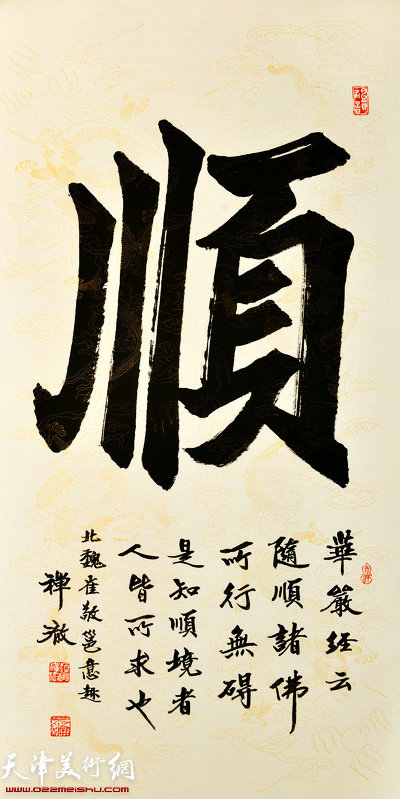 順
華嚴经云
隨順諸佛
所行無碍
是知順境者
人皆所求也
北魏崔敬邕意趣
禅澈
天津美術網
www.022meishu.com